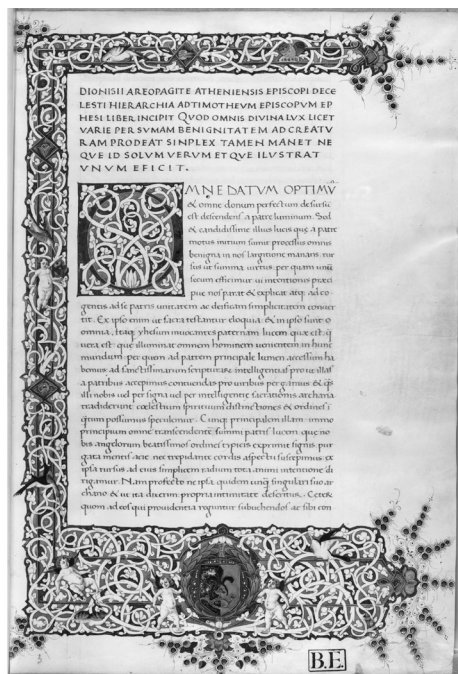 DIONISII AREOPAGITE ATHENIENSIS EPISCOPI DECE
LESTI HIERARCHIA AD TIMOTHEVM EPISCOPVM EP
HESI LIBER INCIPIT QVOD OMNIS DIVINA LVX LICET
VARIE PER SVMAM BENIGNITATEM AD CREATV
RAM PRODEAT SINPLEX TAMEN MANET NE
QVE ID SOLVM VERVM ET QVE ILVSTRAT
VNVM EFICIT.
OMNE DATVM OPTIMV
& omne donum perfectum desursũ
est descendens a patre luminum. Sed
& candidissime illius lucis que a patre
motus initium sumit processus omnis
benigna in nos largitione manans rur
sus ut summa virtus per quam unũ
secum efficimur
pue nos parat & explicat atq; ad co
gentis ad se patris unitatem ac deificam simplicitatem conuer
tit. Ex ipso enim ut sacra testantur eloquia & in ipso sunt o
omnia, itaq; yhesum inuocantes paternam lucem que est. q
vera est que illuminat omnem hominem uenientem in hunc
mundum per quem ad patrem principale lumen accessum ha
bemus ad sanctissimarum scripturarum intelligentias
a patribus accepimus pro viribus pergamus & eas
illi nobis uel per signa uel per intelligentie sacratioris archana
tradiderunt celestium spirituum distinctiones & ordines
quom possumus speculemur. Cunq; principalem illam immo
principium omne transcendente summi patris lucem que no
bis angelorum beatissimos ordines typicis exprimit signis, pur
gata mentis acie nec trepidante cordis aspectu suscepimus ex
ipsa rursus ad eius simplicem radium tota animi intentione di
rigamur. Nam profecto ne ipsa quidem unq; singulari suo ar
chano & ut ita dicerim propria intimitate deseritur. Ceterũ
quom ad eos qui prouidentia reguntur subuehendos ac sibi con
B.E.